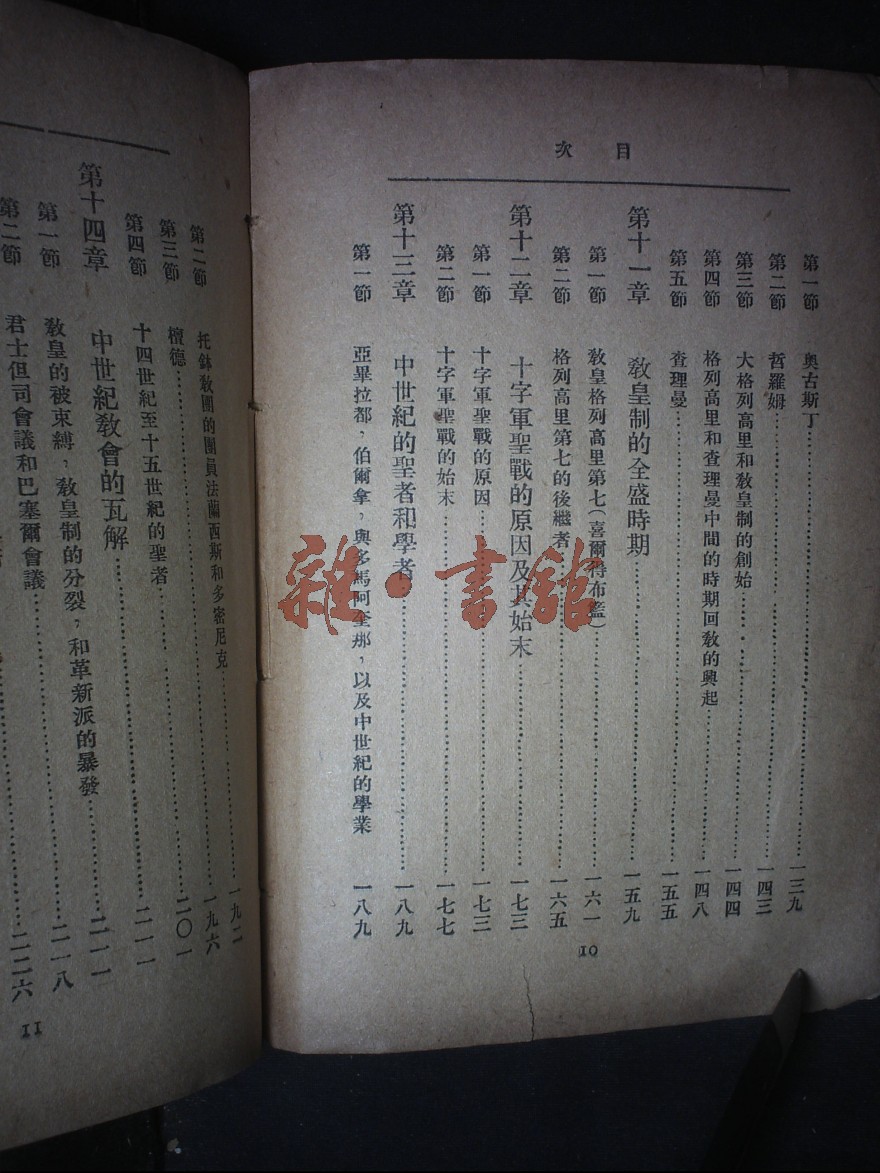 目次
第一節 奧古斯丁 一三九
第二節 哲羅姆 一四三
第三節 大格列高里和敎皇制的創始 一四四
第四節 格列高里和查理曼中間的時期回敎的興起 一四八
第五節 查理曼 一五五
第十一章 敎皇制的全盛時期 一五九
第一節 敎皇格列高里第七(喜爾得布藍) 一六一
第二節 格列高里第七的後繼者 一六五
第十二章 十字軍聖戰的原因及其始末 一七三
第一節 十字軍聖戰的原因 一七三
第二節 十字軍聖戰的始末 一七七
第十三章 中世紀的聖者和學者 一八九
第一節 亞畢拉都,伯爾拿,與多馬阿奎那,以及中世紀的學業 一八九
10
第二節 托鉢敎團的團員法蘭西斯和多密尼克 一九二
第三節 檀德 一九六
第四節 十四世紀至十五世紀的聖者 二〇一
第十四章 中世紀敎會的瓦解 二一一
第一節 敎皇的被束縛,敎皇制的分裂,和革新派的暴發 二一一
第二節 君士但司會議和巴塞爾會議 二一八
二二六
11
雜·書館